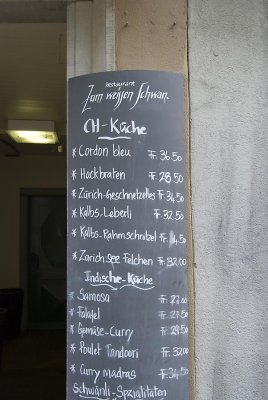 Restaurant
Zum weissen Schwan.
CH-Küche
* Cordon bleu Fr. 36.50
* Hackbraten Fr. 28.50
* Zürich-Geschnetzeltes Fr. 34.50
* Kalbs-Leberli Fr. 32.50
* Kalbs-Rahmschnitzel Fr.
* Zürich see Felchen Fr. 32.00
Indische-Küche
* Samosa Fr.
* Falafel Fr.
* Gemüse-Curry Fr.
* Poulet Tandoori Fr. 32.00
* Curry madras Fr. 34.50
Schwänli-Spezialitäten